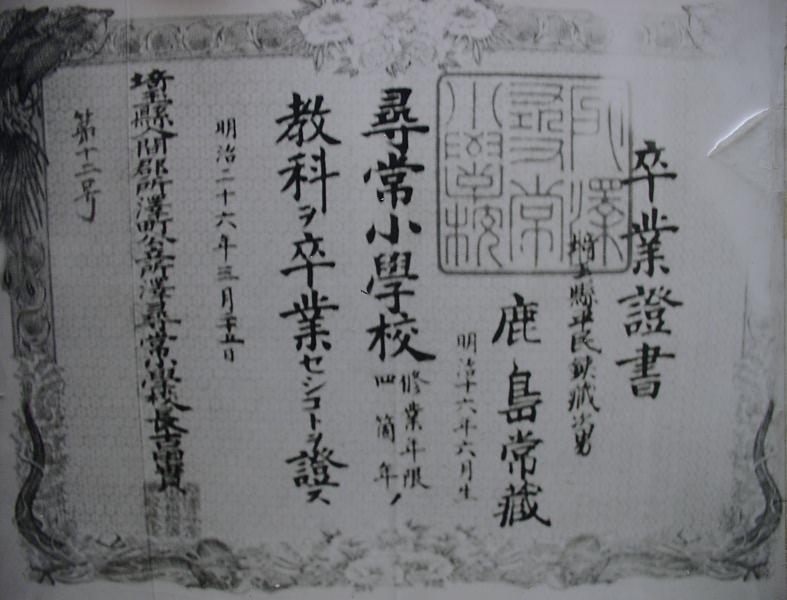 卒業證書
所澤尋常小學校
埼玉縣平民鉄藏次男
鹿島常藏
明治十六年六月生
尋常小學校修業年限四箇年ノ
教科ヲ卒業セシコトヲ證ス
明治二十六年三月二十五日
埼玉縣入間郡所澤町公立所澤尋常小學校長
第十二号